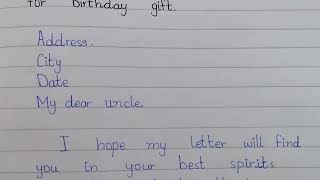 for birthday gift.
Address.
City
Date
My dear uncle,
I hope my letter will find
you in your best spirits